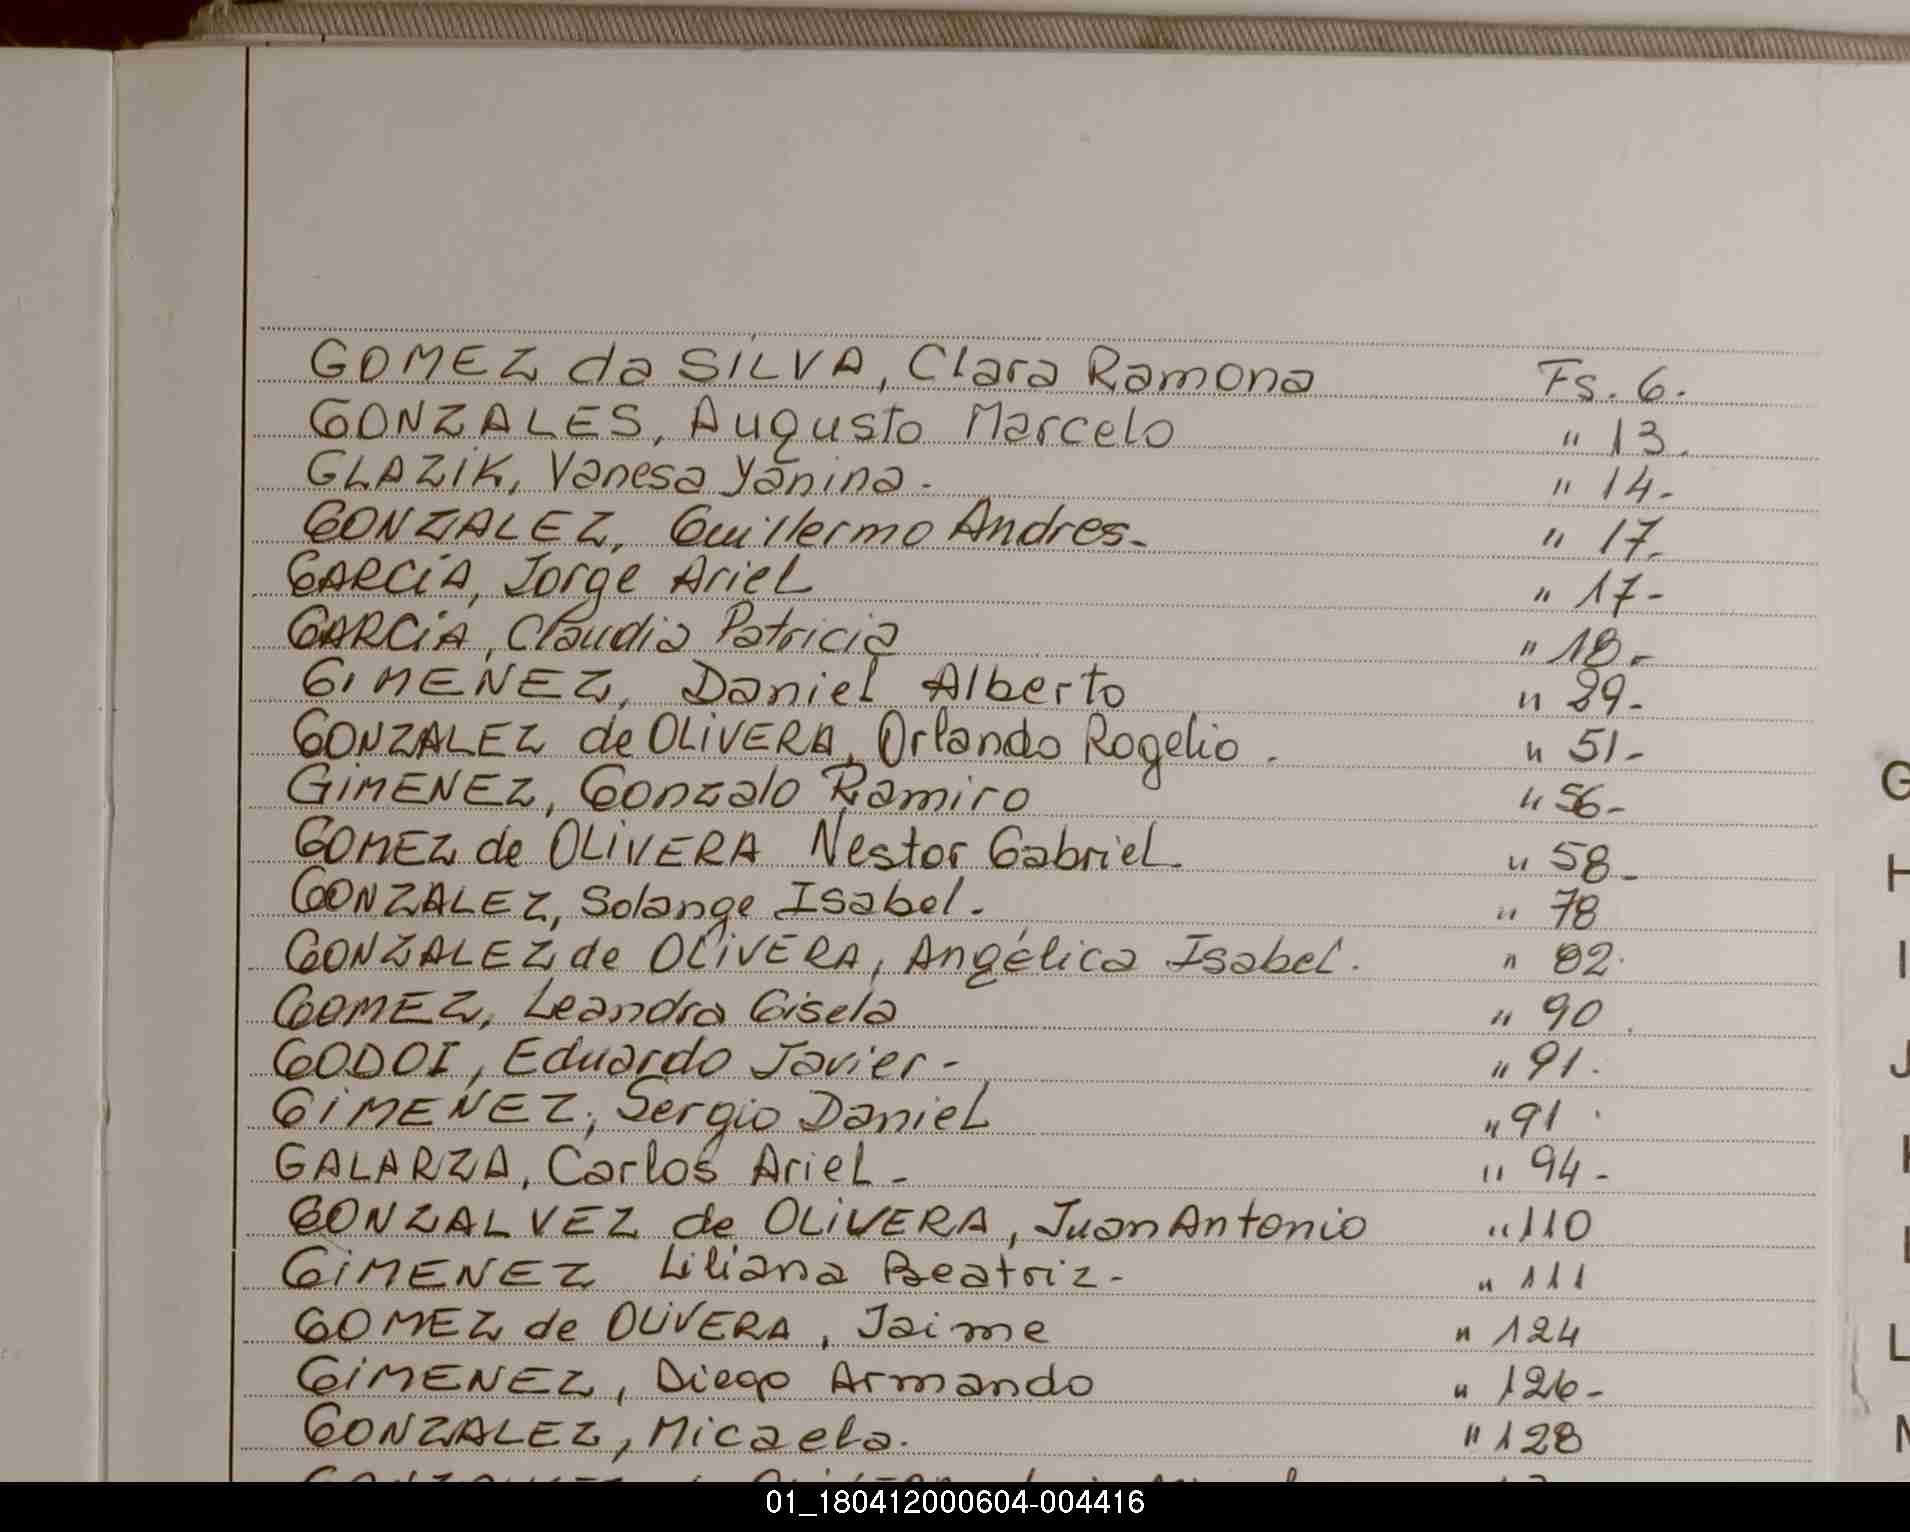 GOMEZ da SILVA, Clara Ramona Fs. 6.
GONZALES, Augusto Marcelo " 13.
GLAZIK, Vanesa Yanina. " 14-
GONZALEZ, Guillermo Andres. " 17.
GARCÍA, Jorge Ariel " 17-
GARCÍA, Claudia Patricia " 18.
GIMENEZ, Daniel Alberto " 29-
GONZALEZ de OLIVERA, Orlando Rogelio. " 51-
GIMENEZ, Gonzalo Ramiro " 56-
GOMEZ de OLIVERA Nestor Gabriel. " 58-
GONZALEZ, Solange Isabel. " 78
GONZALEZ de OLIVERA, Angélica Isabel. " 82.
GOMEZ, Leandra Gisela " 90.
GODOI, Eduardo Javier- " 91.
GIMENEZ, Sergio Daniel " 91.
GALARZA, Carlos Ariel- " 94-
GONZALVEZ de OLIVERA, Juan Antonio " 110
GIMENEZ Liliana Beatriz- " 111
GOMEZ de OLIVERA, Jaime " 124
GIMENEZ, Diego Armando " 126-
GONZALEZ, Micaela. " 128
G
H
I
J
L
01_180412000604-004416